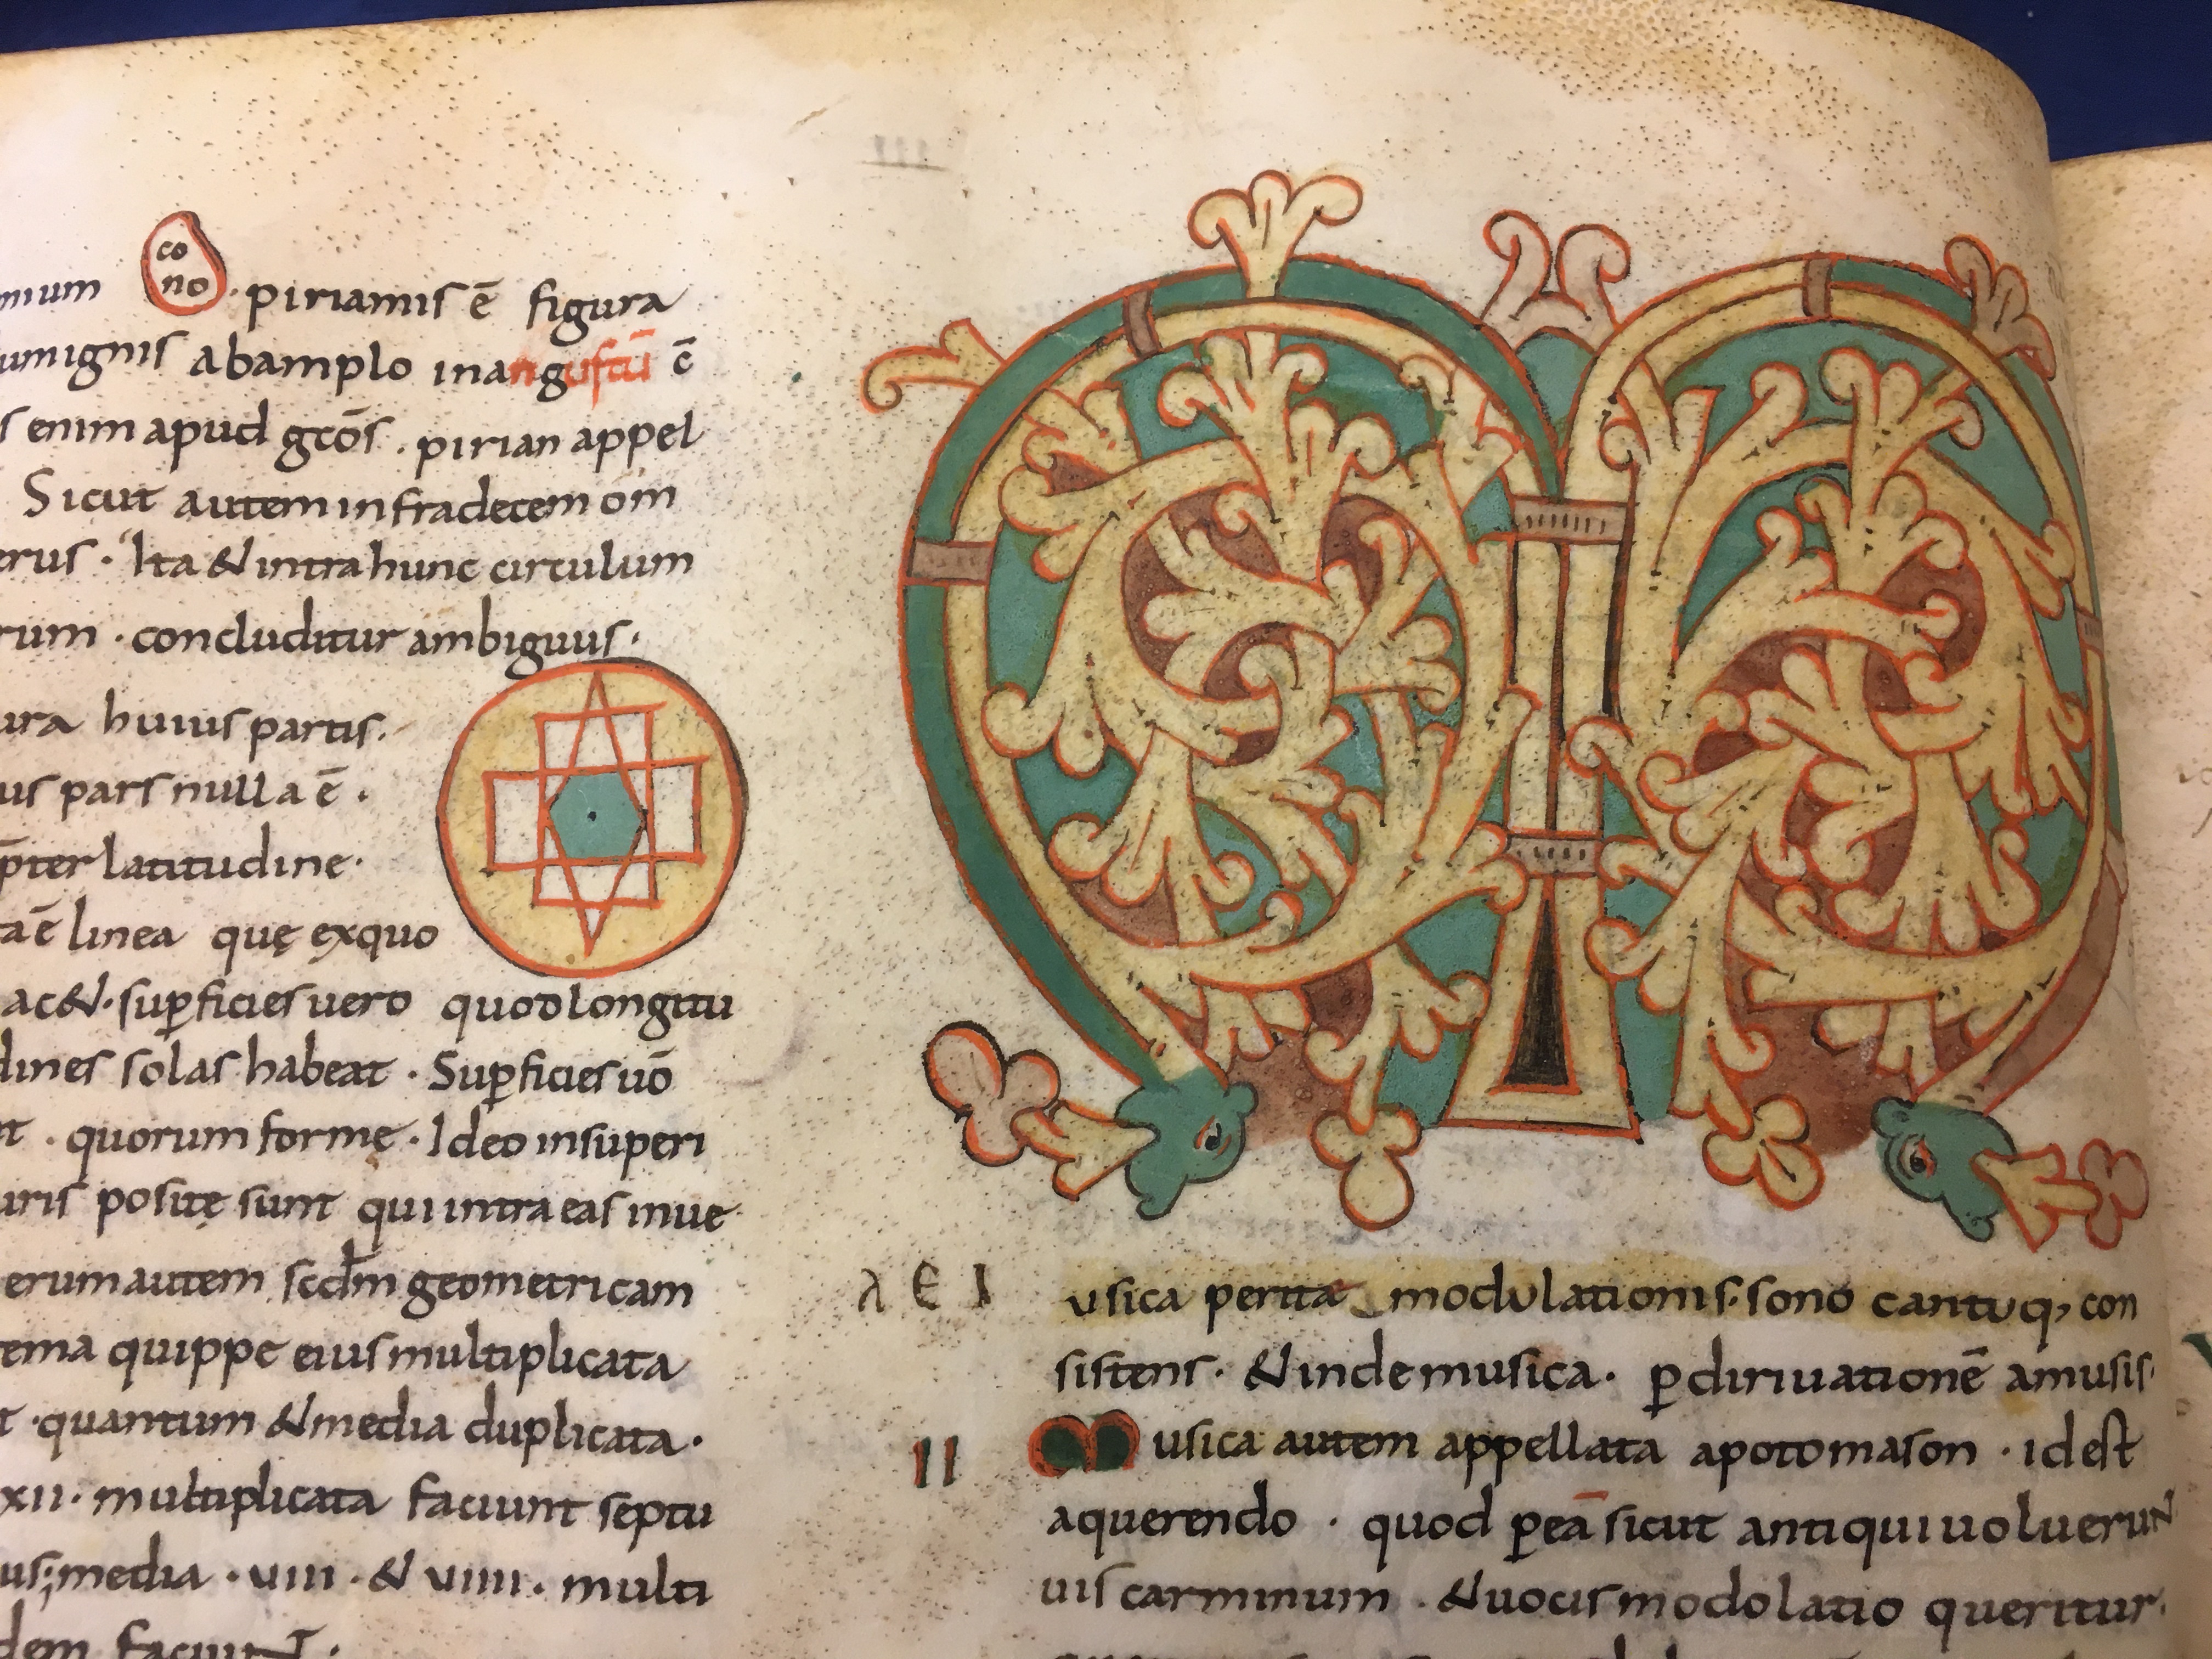 co
no
mium · piriamis ē figura
umignis abamplo inangustū ē
s enim apud gcōs · pirian appel
Sicut autem infradecem om
erus · Ita & intra hunc circulum
rum · concluditur ambiguus ·
ura huius partis ·
us pars nulla ē ·
p̄ter latitudine ·
ta ē linea quę exquo
ac& · sup̱ficies uero quodlongitu
dines solas habeat · Sup̱ficies uō
nt · quorum forme · Ideo insuperi
uris positę sunt qui intra eas inue
erum autem scdm̄ geometricam
tema quippe eius multiplicata
t · quantum & media duplicata ·
xii · multiplicata faciunt septu
us; media · uiii · & uiiii · multi
dem faciunt ·
M
λ Є Ι usica perita modulationis · sono cantuq, con
sistens · & inde musica · p̱diriuationē amusis ·
II Musica autem appellata apotomason · idest
aquerendo · quod p̱eā sicut antiqui uoluerunt
uis carminum · & uocis modolatio queritur ·